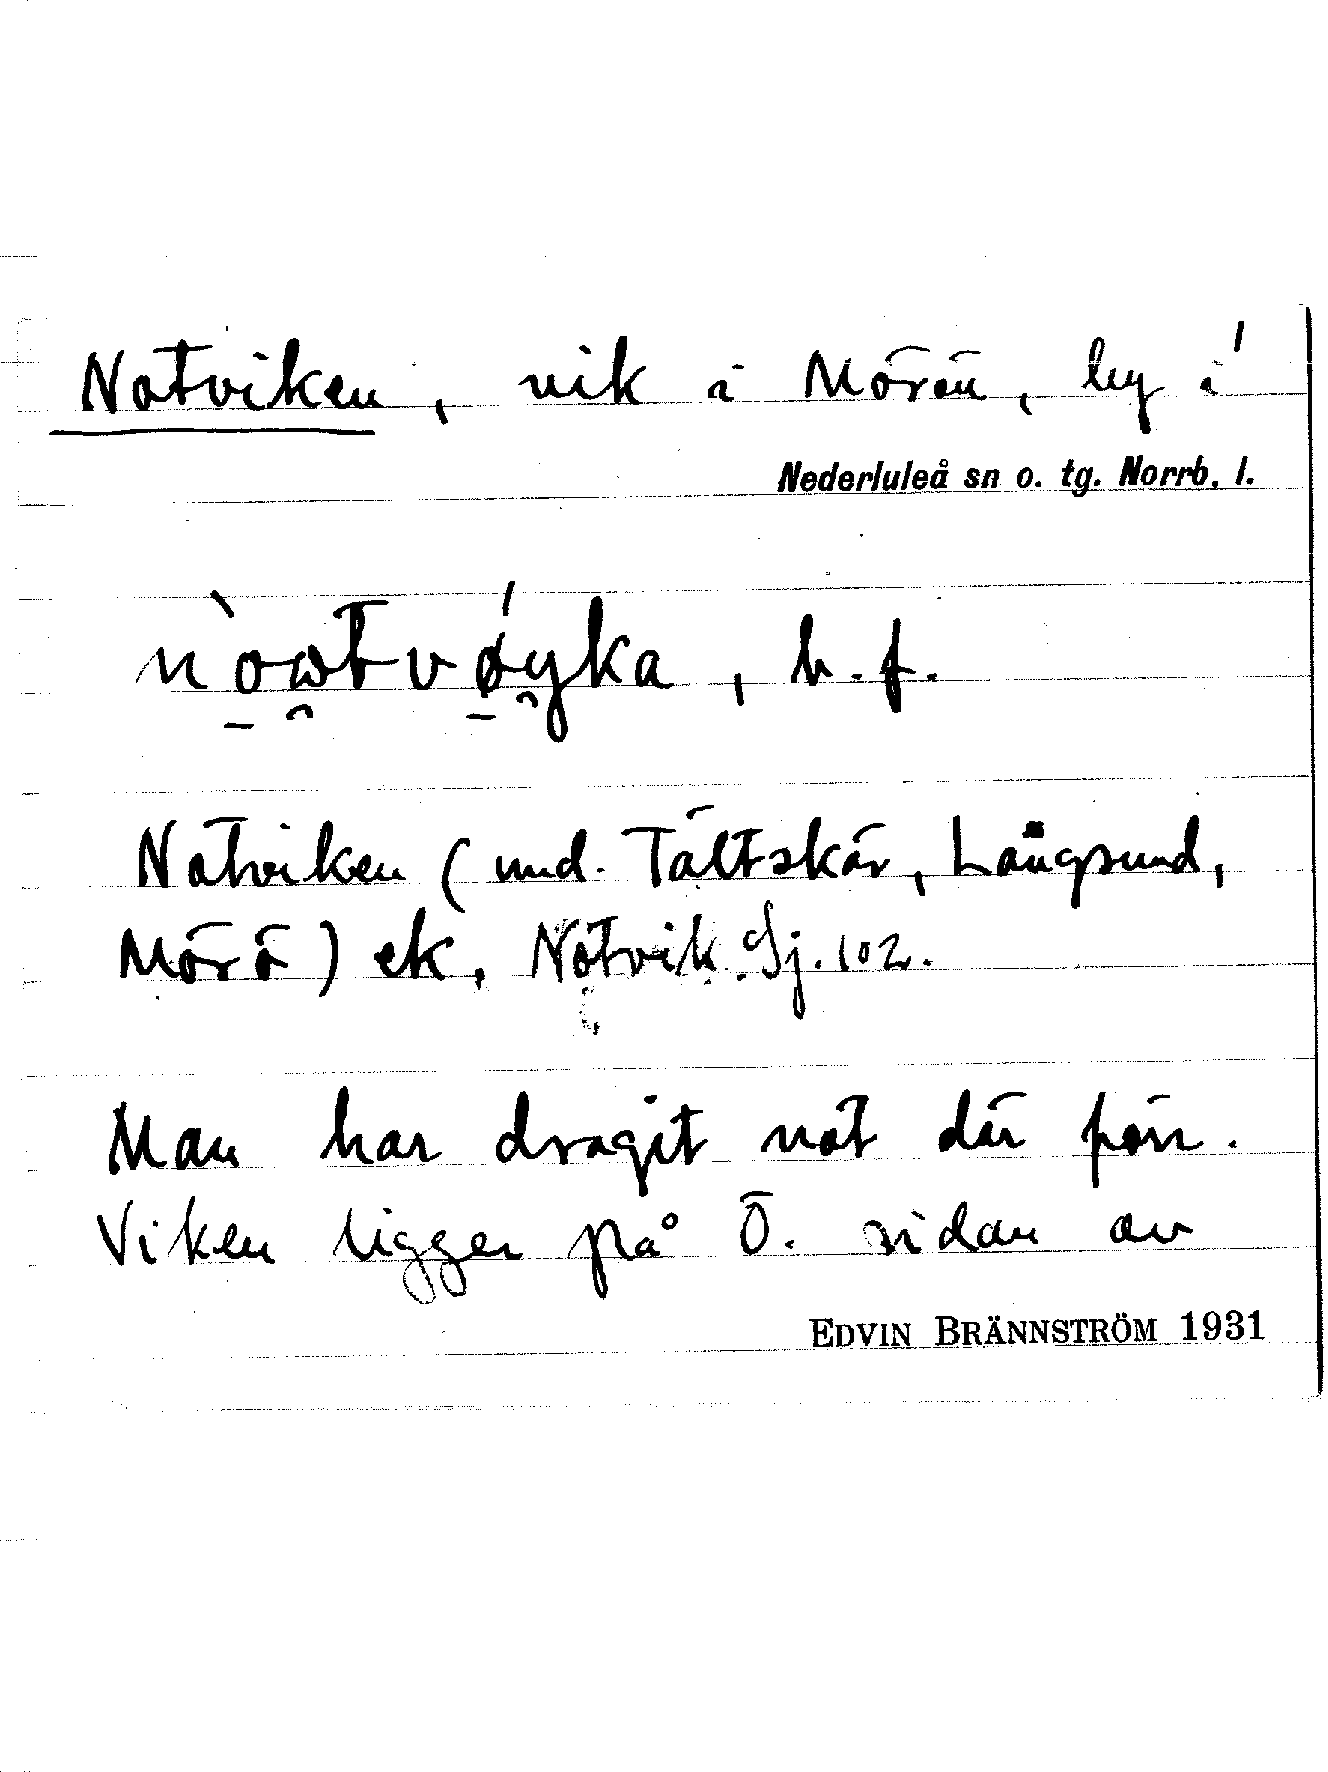 Notviken, vik i Mörön, leg i
Nederluleå sn o. tg. Norrb. l.
b.f.
Notviken (und. Tältskär, Långsund,
Mörö) ek, Notvik. Sj. 102.
Man har dragit not där förr.
Viken ligger på Ö. sidan av
EDVIN BRÄNNSTRÖM 1931